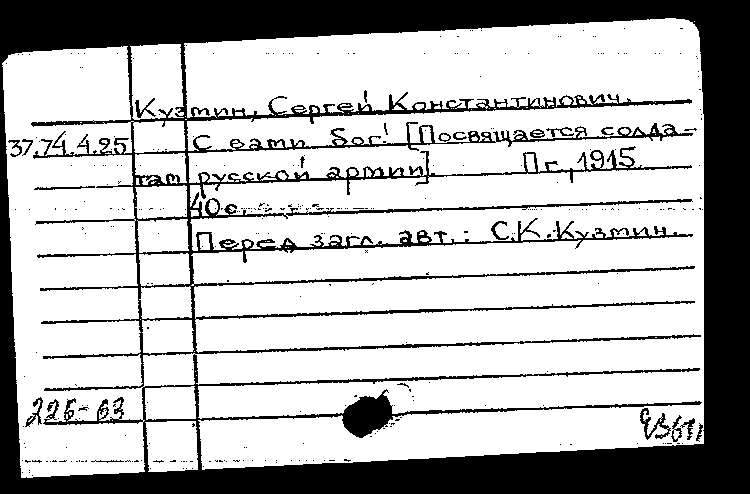 Кузмин, Сергей Константинович.
37.74.4.25 С вами бог! [Посвящается солда-
там русской армии]. Пг., 1915.
40 с.
Перед загл. авт.: С.К. Кузмин.
226-63